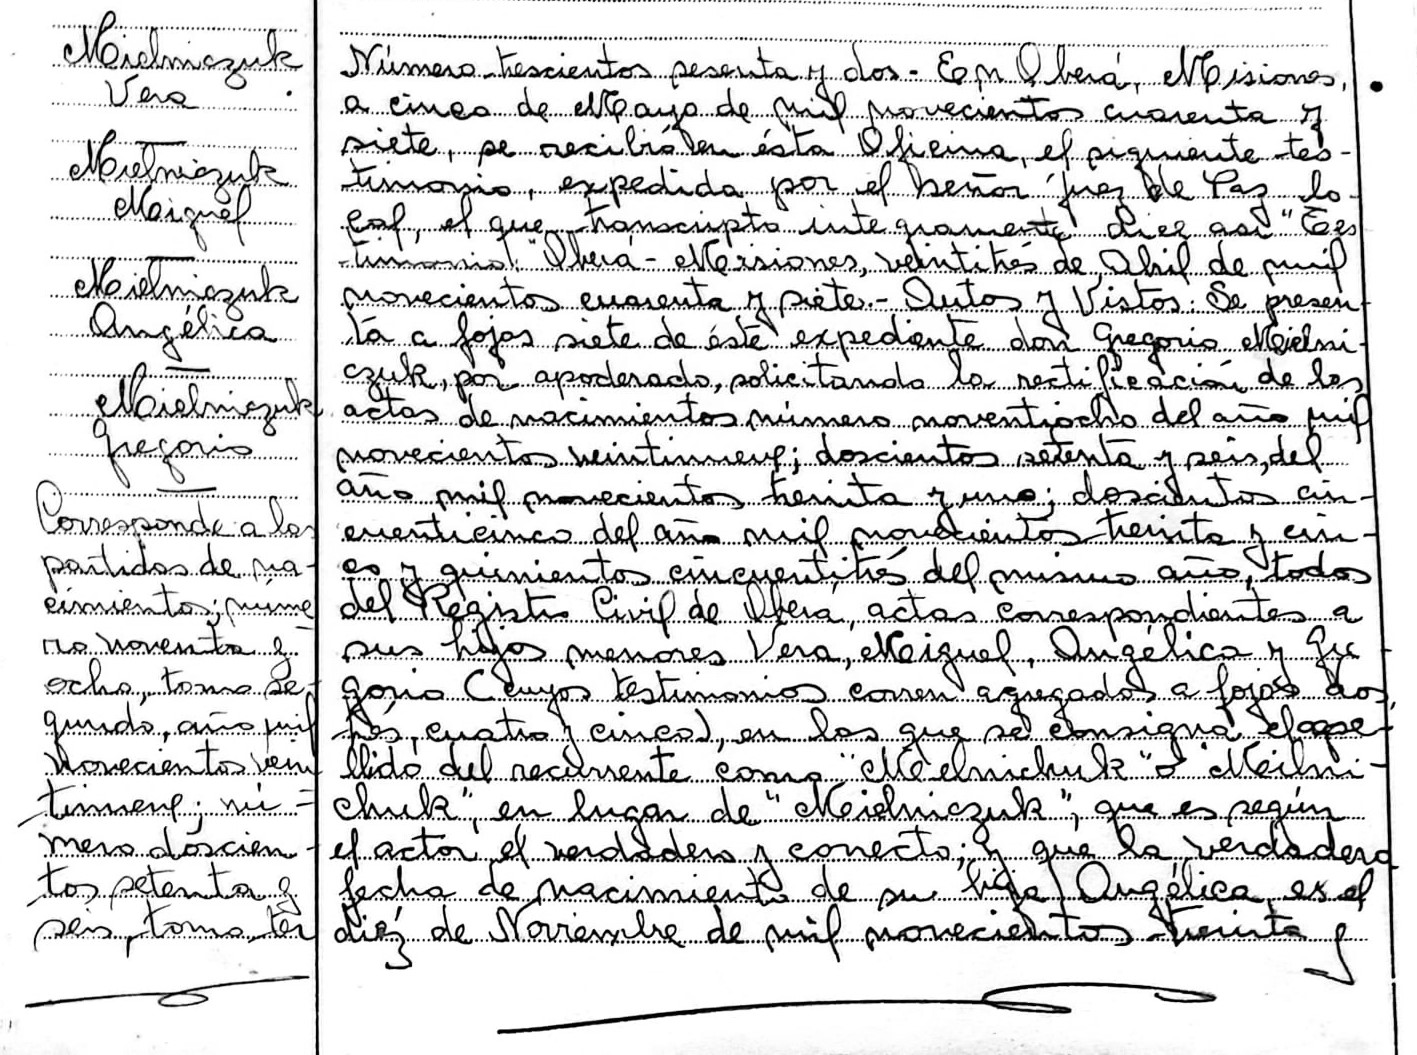 Mielniczuk
Vera
Mielniczuk
Miguel
Mielniczuk
Angélica
Mielniczuk
Gregorio
Corresponde a las
partidas de na-
cimientos; núme
ro noventa y
ocho, tomo se-
gundo, año mil
novecientos vein
tinueve; nú=
mero doscien-
tos setenta y
seis, tomo, ter
Número trescientos sesenta y dos.- En Oberá, Misiones,
a cinco de Mayo de mil novecientos cuarenta y
siete, se recibió en ésta Oficina, el siguiente tes-
timonio, expedida por el Señor juez de Paz lo-
cal, el que transcripto integramente dice así "Tes
timonio": "Oberá - Misiones, veintitrés de Abril de mil
novecientos cuarenta y siete.- Autos y Vistos: Se presen-
tá a fojas siete de éste expediente don Gregorio Mielni-
czuk, por apoderado, solicitando la rectificación de las
actas de nacimientos número noventiocho del año mil
novecientos veintinueve; doscientos setenta y seis, del
año mil novecientos treinta y uno; doscientos cin-
cuenticinco del año mil novecientos treinta y cin-
co y quinientos cincuentitrés del mismo año, todos
del Registro Civil de Oberá, actas correspondientes a
sus hijos menores Vera, Miguel, Angélica y Gre
gorio (cuyos testimonios corren agregados a fojas dos,
trés, cuatro y cinco), en las que se consigna el ape-
llido del recurrente como "Melnichuk" o "Meilni-
chuk", en lugar de "Mielniczuk", que es según
el actor, el verdadero y correcto; y que la verdadera
fecha de nacimiento de su hija Angélica, es el
diéz de Noviembre de mil novecientos treinta y